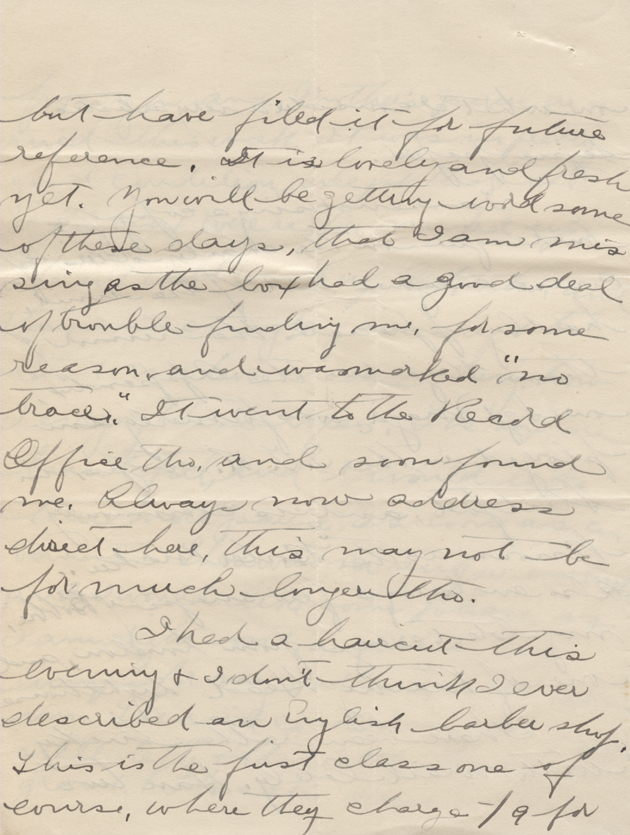 but have filed it for future
reference. It is lovely and fresh
yet. You will be getting word some
of these days, that I am mis
sing as the box had a good deal
of trouble finding me, for some
reason, and was marked "no
trace". It went to the Record
Office tho, and soon found
me. Always now address
direct here, this may not be
for much longer tho.
I had a haircut this
evening & I don't think I ever
described an English barber shop.
This is the first class one of
course, where they charge 1/9 for